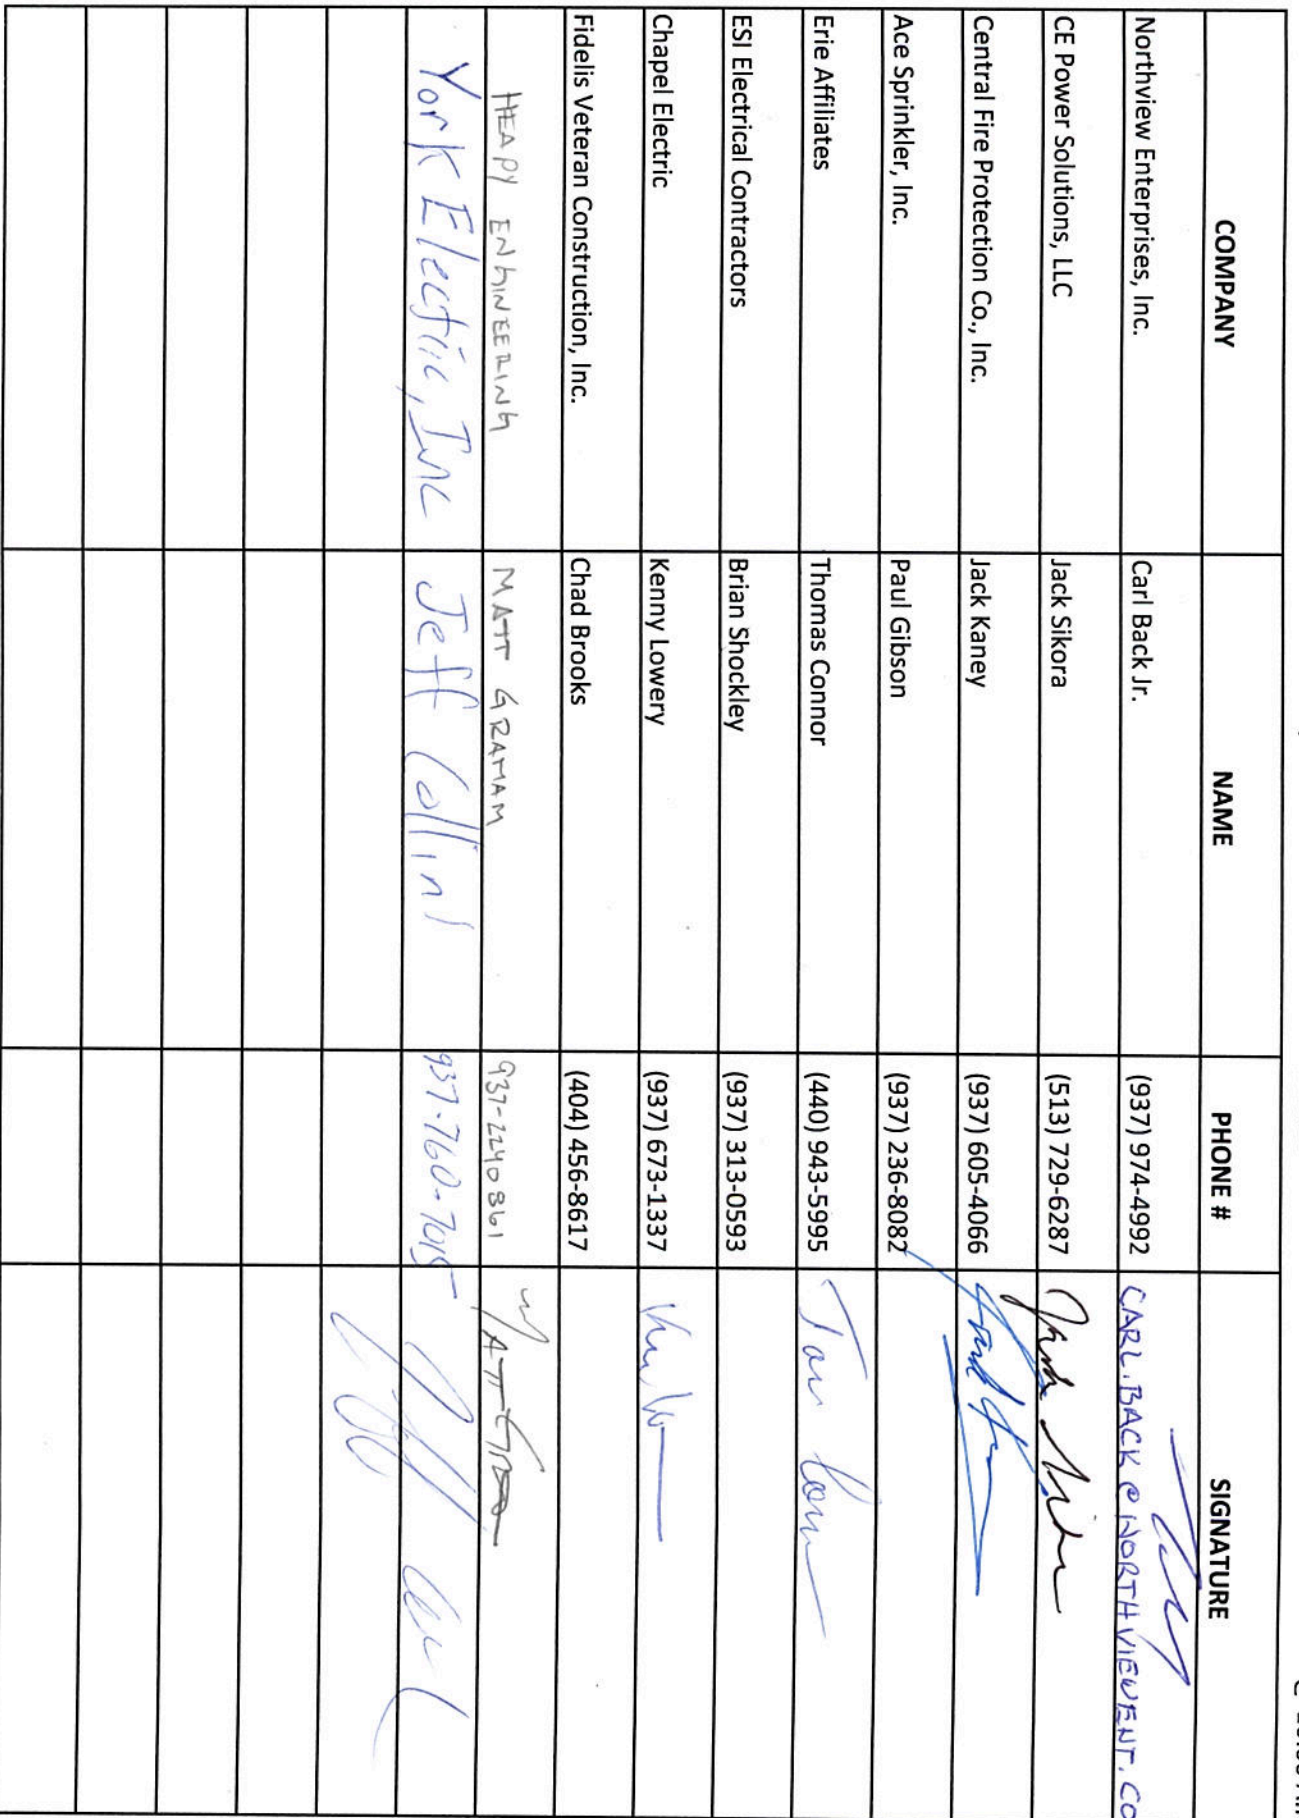 COMPANY NAME PHONE # SIGNATURE
Northview Enterprises, Inc. Carl Back Jr. (937) 974-4992 CARL.BACK@NORTHVIEWENT.CO
CE Power Solutions, LLC Jack Sikora (513) 729-6287
Central Fire Protection Co., Inc. Jack Kaney (937) 605-4066
Ace Sprinkler, Inc. Paul Gibson (937) 236-8082
Erie Affiliates Thomas Connor (440) 943-5995
ESI Electrical Contractors Brian Shockley (937) 313-0593
Chapel Electric Kenny Lowery (937) 673-1337
Fidelis Veteran Construction, Inc. Chad Brooks (404) 456-8617
HEAPY ENGINEERING MATT GRAHAM 937-2240861
York Electric, Inc Jeff Collins 937-760-7015